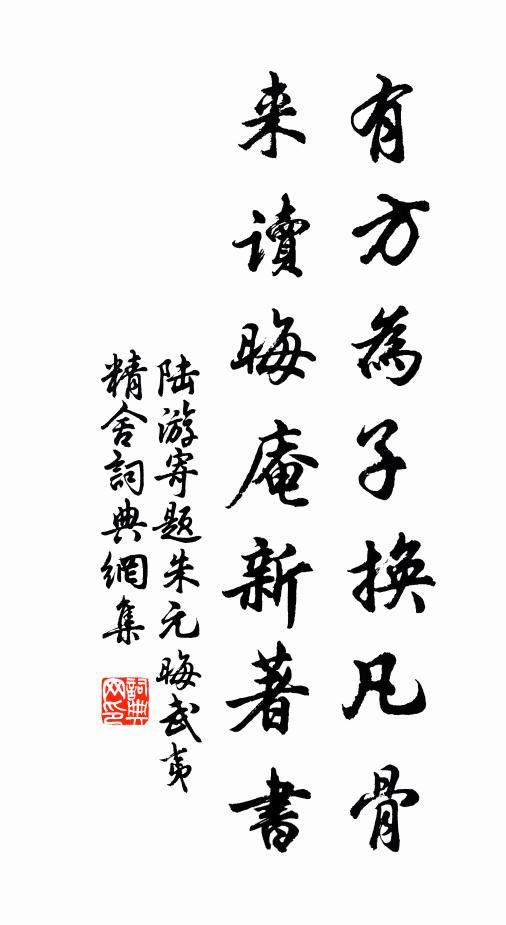 有方為子換凡骨
来讀晦庵新著書
陆游寄题朱元晦武夷
精舍詞典網集
詞典网印